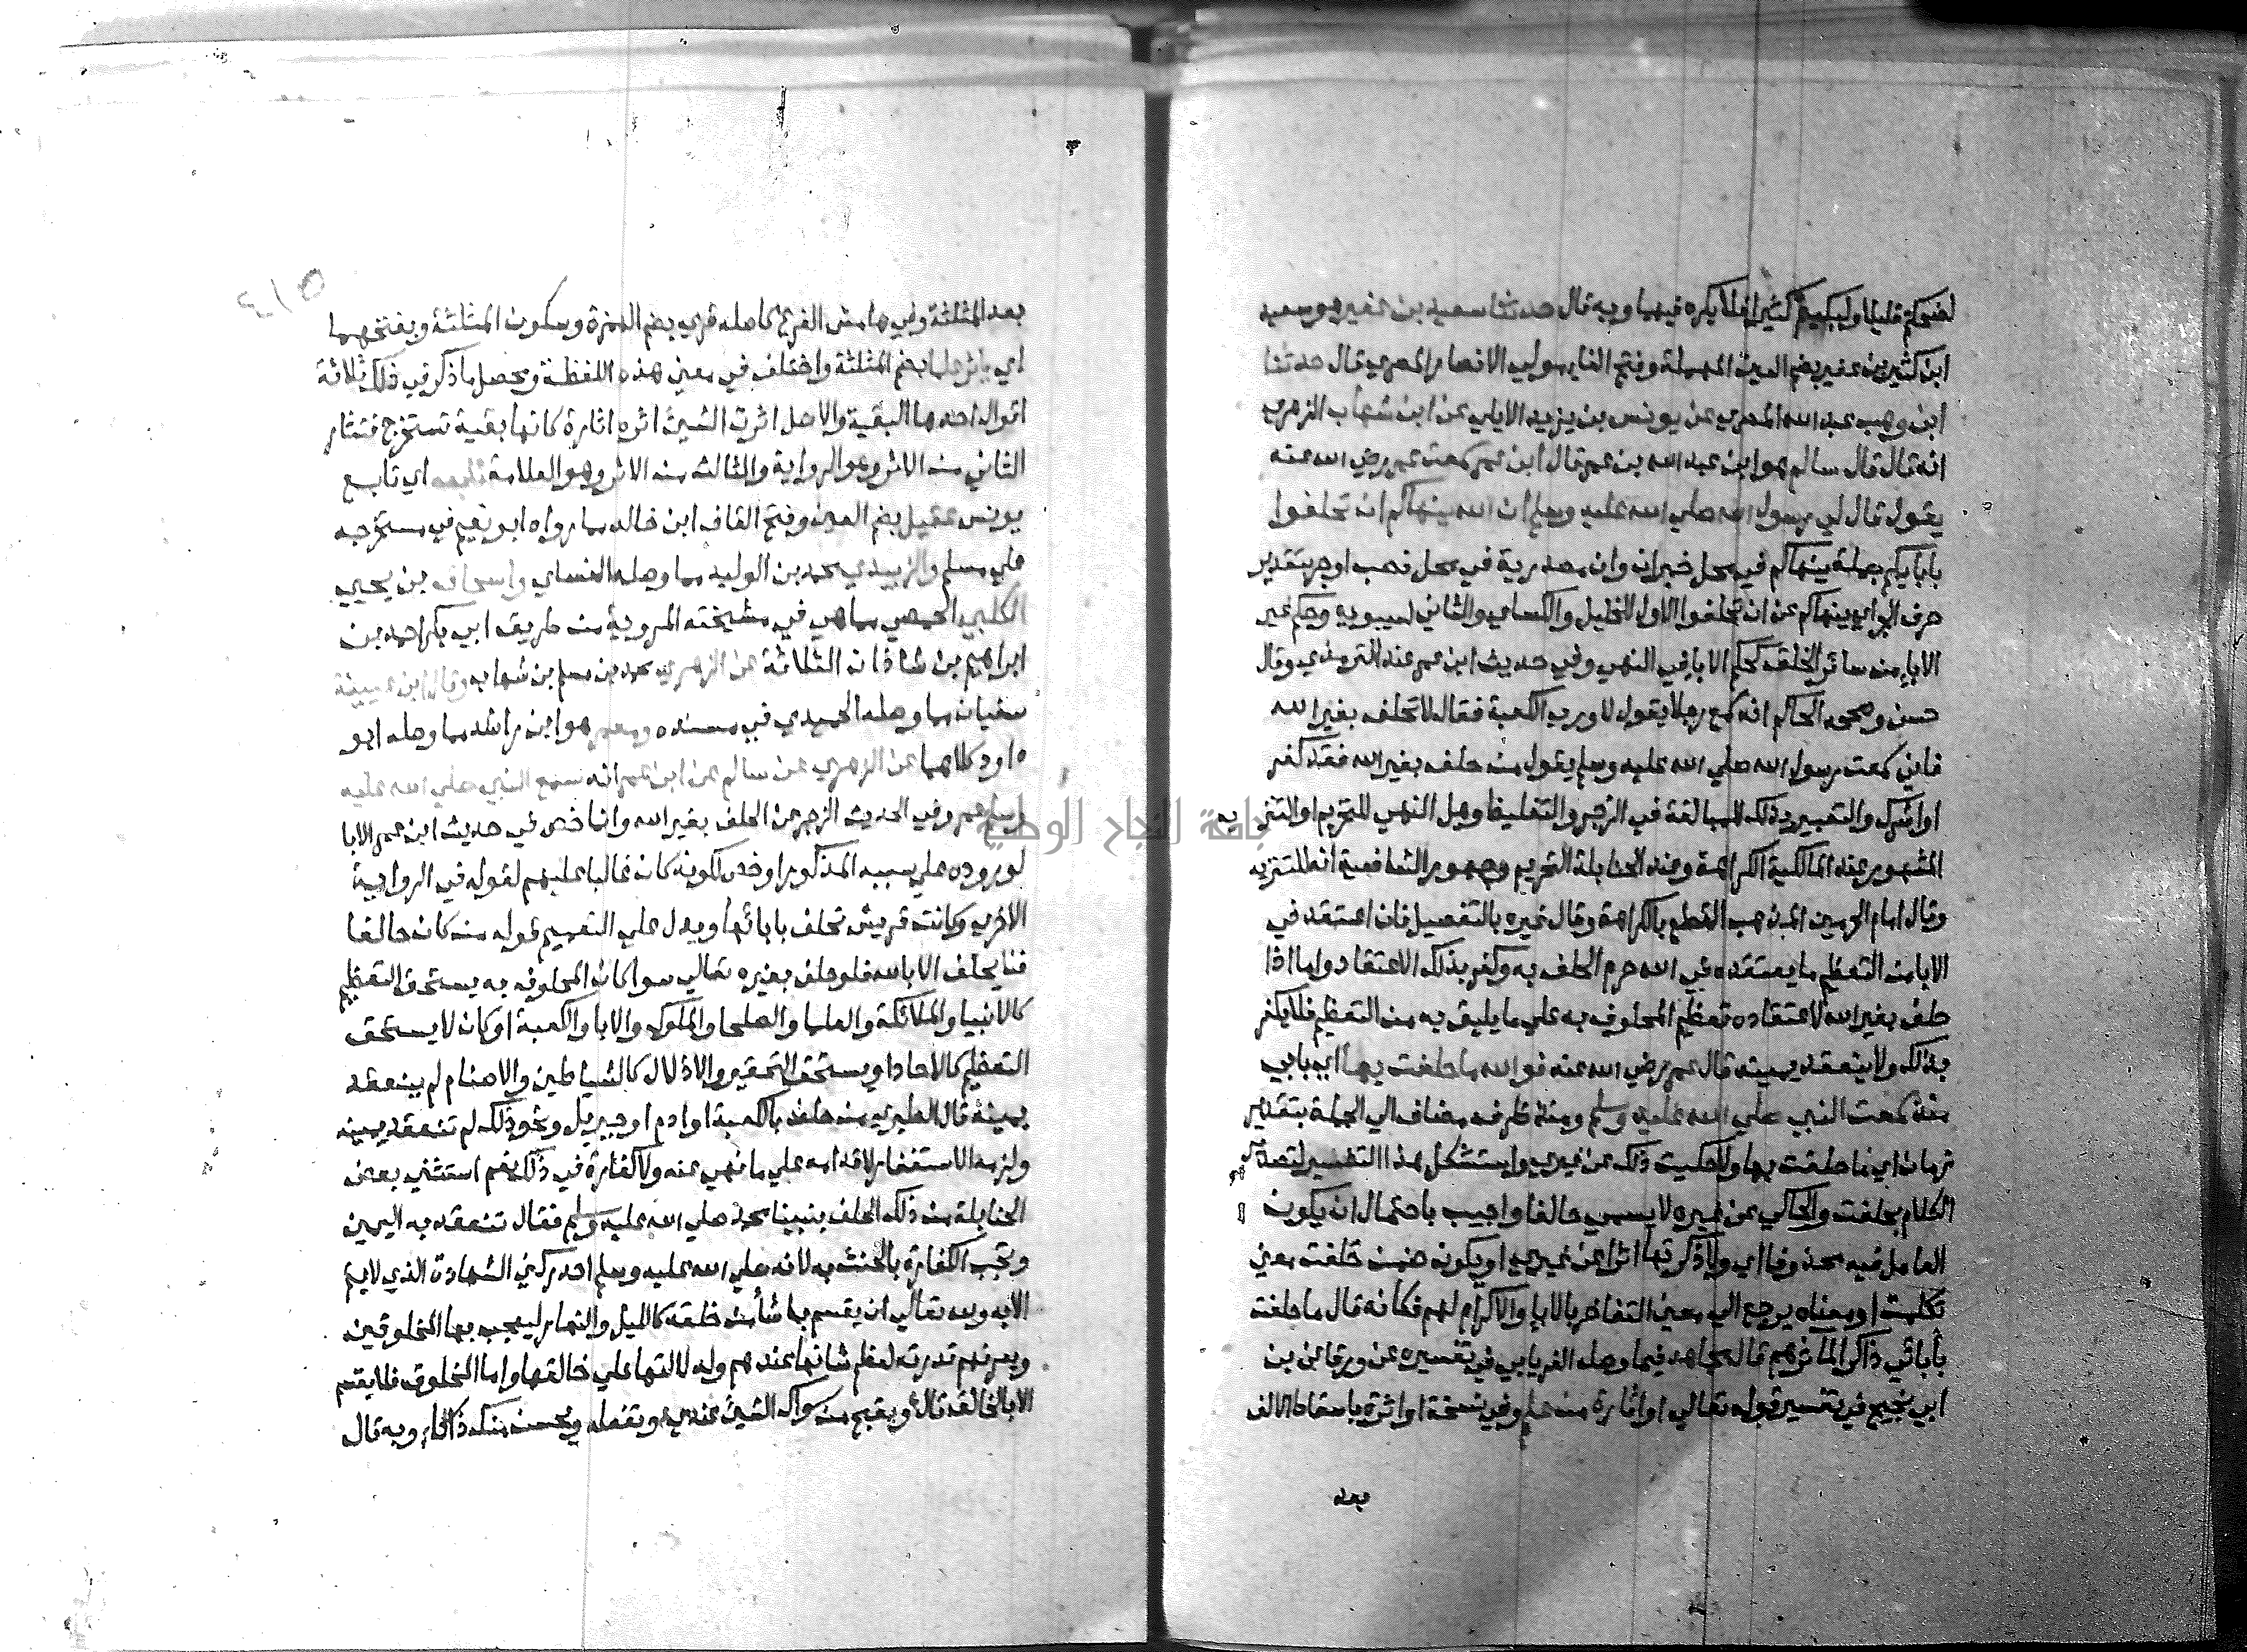 لضحكتم قليلا ولبكيتم كثيرا فلا يكره فيهما وبه قال حدثنا سعيد بن عفير هو سعيد
ابن كثير بن عفير بضم العين المهملة وفتح الفاء مولي الانصار المصري قال حدثنا
ابن وهب عبد الله المصري عن يونس بن يزيد الايلي عن ابن شهاب الزهري
انه قال قال سالم هو ابن عبد الله بن عمر قال ابن عمر سمعت عمر رضي الله عنه
يقول قال لي رسول الله صلي الله عليه وسلم ان الله ينهاكم ان تحلفوا
بابايكم جملة ينهاكم في محل خبر ان وان مصدرية في محل نصب او جر بتقدير
حرف الجر اي ينهاكم عن ان تحلفوا الاول للخليل والكساي والثاني لسيبويه وحكم غير
الاباء من سائر الخلق كحكم الابا في النهي وفي حديث ابن عمر عند الترمذي وقال
حسن وصححه الحاكم انه سمع رجلا يقول لا ورب الكعبة فقال لا تحلف بغير الله
فاني سمعت رسول الله صلي الله عليه وسلم يقول من حلف بغير الله فقد كفر
او اشرك والتعبير بذلك للمبالغة في الزجر والتغليظ وهل النهي للتحريم او للتنزيه
المشهور عند المالكية الكراهة وعند الحنابلة التحريم وجمهور الشافعية انه للتنزيه
وقال امام الحرمين المذهب القطع بالكراهة وقال غيره بالتفصيل فان اعتقد في
الابا من التعظيم ما يعتقده في الله حرم الحلف به وكفر بذلك الاعتقاد واما اذا
حلف بغير الله لاعتقاده تعظيم المحلوف به علي ما يليق به من التعظيم فلا يكفر
بذلك ولا ينعقد يمينه قال عمر رضي الله عنه فوالله ما حلفت بها اي بابي
منذ سمعت النبي صلي الله عليه وسلم ومنذ ظرف مضاف الي الجملة بتقدير
زمان اي ما حلفت بها ولا حكيت ذلك عن غيري واستشكل هذا التفسير لتصدير
الكلام بحلفت والحاكي عن غيره لا يسمي حالفا واجيب باحتمال ان يكون
العامل فيه محذوفا اي ولا ذكرتها اثرا عن غيري او يكون ضمن حلفت معني
تكلمت او معناه يرجع الي معني التفاخر بالابا والاكرام لهم فكانه قال ما حلفت
بأبائي ذاكر المآثرهم قال مجاهد فيما وصله الفريابي في تفسيره عن ورقا عن بن
ابي نجيح في تفسير قوله تعالي او اثارة من علم وفي نسخة او اثرة باسقاط الالف
بعد
بعد المثلثة وفي هامش الفرع كاصله قري بضم الهمزة وسكون المثلثة وبفتحهما
اي ياثر علما بضم المثلثة واختلف في معني هذه اللفظة ومحصل ما ذكر في ذلك ثلاثة
اقوال احدها البقية والاصل اثرت الشيئ اثره اثارة كانها بقية تستخرج فتثار
الثاني من الاثر وهو الرواية والثالث من الاثر وهو العلامة تابعه اي تابع
يونس عقيل بضم العين وفتح القاف ابن خالد مما رواه ابو نعيم في مستخرجه
علي مسلم والزبيدي محمد بن الوليد مما وصله النساي واسحاق بن يحيي
الكلبي الحمصي مما هي في مشيخته المروية من طريق ابي بكر احمد بن
ابراهيم بن شاذان الثلاثة عن الزهري محمد بن مسلم بن شهاب وقال ابن عيينة
سفيان مما وصله الحميدي في مسنده ومعمر هو ابن راشد مما وصله ابو
داود كلاهما عن الزهري عن سالم عن ابن عمر انه سمع النبي صلي الله عليه
وسلم عمر وفي الحديث الزجر عن الحلف بغير الله وانما خص في حديث ابن عمر الابا
لوروده علي سببه المذكور او خص لكونه كان غالبا عليهم لقوله في الرواية
الاخري وكانت قريش تحلف بابائها ويدل علي التعميم قوله من كان حالفا
فلا يحلف الا بالله فلو حلف بغيره تعالي سوا كان المحلوف به يستحق التعظيم
كالانبيا والملائكة والعلما والصلحا والملوك والابا والكعبة او كان لا يستحق
التعظيم كالاحاد او يستحق التحقير والاذلال كالشياطين والاصنام لم ينعقد
يمينه قال الطبري من حلف بالكعبة او ادم او جبريل ونحو ذلك لم تنعقد يمينه
ولزمه الاستغفار لاقدامه علي ما نهي عنه ولا كفارة في ذلك نعم استثني بعض
الحنابلة من ذلك الحلف بنبينا محمد صلي الله عليه وسلم فقال تنعقد به اليمين
وتجب الكفارة بالحنث به لانه صلي الله عليه وسلم احد ركني الشهادة الذي لا يتم
الا به ولله تعالي ان يقسم بما شأ من خلقه كالليل والنهار ليعجب بها المخلوقين
ويعرفهم قدرته لعظم شانها عندهم ولدلالتها علي خالقها واما المخلوق فلا يقسم
الا بالخالق قال ويقبح من سواك الشيئ عندي وتفعله فيحسن منك ذاكا وبه قال
جامعة النجاح الوطنية